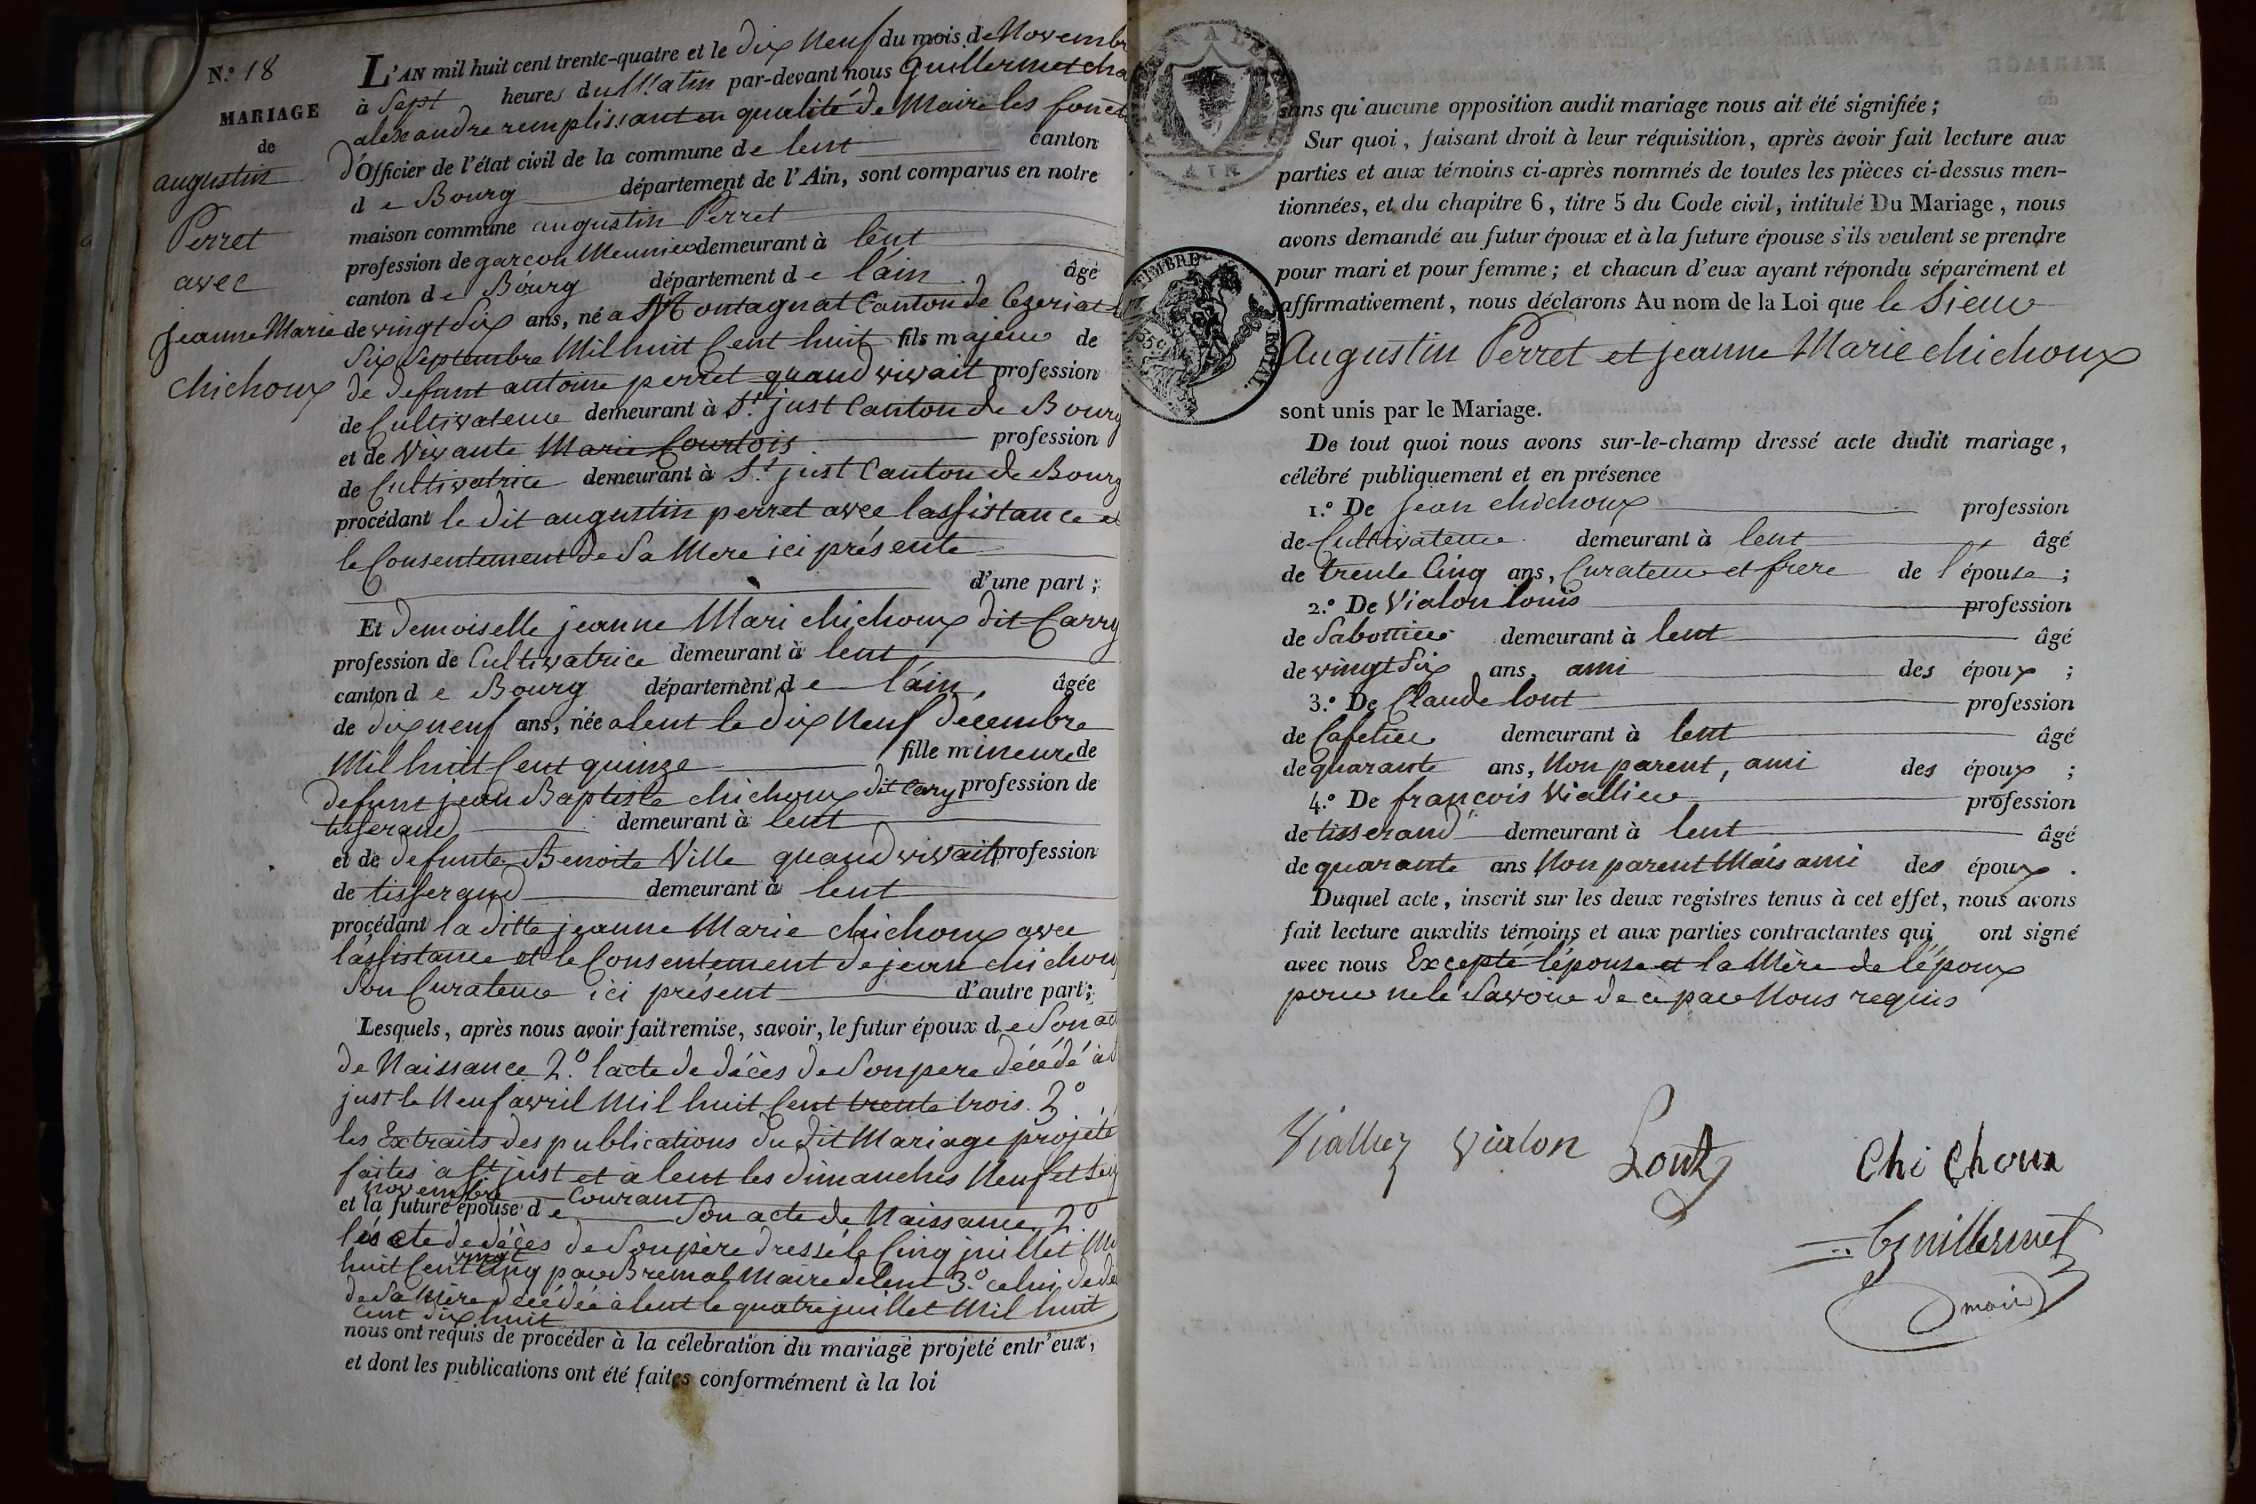 N.º 18
MARIAGE
de
augustin
Perret
avec
jeanne Marie
chichoux
L'AN mil huit cent trente-quatre et le dix Neuf du mois de Novembr
à Sept heures du Matin par-devant nous Guillermet cha
alexandre remplissant en qualité de Maire les fonct
d'Officier de l'état civil de la commune de lent canton
de Bourg département de l'Ain, sont comparus en notre
maison commune augustin Perret
profession de garcon Meunier demeurant à lent
canton de Bourg département de l'ain âgé
de vingt Six ans, né a Montagnat Canton de Cezeriat le
Six Septembre Mil huit Cent huit fils majeur de
de defunt antoine perret quand vivait profession
de Cultivateur demeurant à St just Canton de Bourg
et de Vivante Marie Courtois profession
de Cultivatrice demeurant à St just Canton de Bourg
procédant le dit augustin perret avec lassistance et
le Consentement de Sa Mere ici présente
d'une part ;
Et Demoiselle jeanne Mari chichoux dit Carry
profession de Cultivatrice demeurant à lent
canton de Bourg département de l'ain, âgée
de dix neuf ans, née a lent le dix Neuf décembre
Mil huit Cent quinze fille mineure de
defunt jean Baptiste chichoux dit Cary profession de
tisserand demeurant à lent
et de defunte Benoite Ville quand vivait profession
de tisserand demeurant à lent
procédant la ditte jeanne Marie chichoux avec
l'assistance et le Consentement de jean chichoux
Son Curateur ici présent d'autre part ;
Lesquels, après nous avoir fait remise, savoir, le futur époux de Son ac
de Naissance 2.º lacte de décès de Son pere décédé à St
just le Neuf avril Mil huit Cent trente trois. 3º
les Extraits des publications du dit Mariage projeté
faites a St just et à lent les dimanches Neuf et Seiz
novembre Courant
et la future épouse de Son acte de Naissance 2.º
l'acte de décès de Son père dressé le Cinq juillet Mil
huit Cent vingt Cinq par Bremal Maire de lent 3.º celui de dé
de Sa Mère décédée à lent le quatre juillet Mil huit
cent dix huit
nous ont requis de procéder à la célébration du mariage projeté entr'eux,
et dont les publications ont été faites conformément à la loi
AIN
TIMBRE ROYAL.
sans qu'aucune opposition audit mariage nous ait été signifiée ;
Sur quoi, faisant droit à leur réquisition, après avoir fait lecture aux
parties et aux témoins ci-après nommés de toutes les pièces ci-dessus men-
tionnées, et du chapitre 6, titre 5 du Code civil, intitulé Du Mariage, nous
avons demandé au futur époux et à la future épouse s'ils veulent se prendre
pour mari et pour femme ; et chacun d'eux ayant répondu séparément et
affirmativement, nous déclarons Au nom de la Loi que le Sieur
Augustin Perret et jeanne Marie chichoux
sont unis par le Mariage.
De tout quoi nous avons sur-le-champ dressé acte dudit mariage,
célébré publiquement et en présence
1.º De jean chichoux profession
de Cultivateur demeurant à lent âgé
de trente Cinq ans, Curateur et frere de l'épouse ;
2.º De Vialon louis profession
de Sabottier demeurant à lent âgé
de vingt Six ans, ami des époux ;
3.º De Claude lont profession
de Cafetier demeurant à lent âgé
de quarante ans, Non parent, ami des époux ;
4.º De françois Viallier profession
de tisserand demeurant à lent âgé
de quarante ans Non parent Mais ami des époux.
Duquel acte, inscrit sur les deux registres tenus à cet effet, nous avons
fait lecture auxdits témoins et aux parties contractantes qui ont signé
avec nous Excepté l'épouse et la Mère de l'époux
pour ne le Savoir de ce par Nous requis
Vialliez Vialon Lont Chi Choux
Guillermet
maire